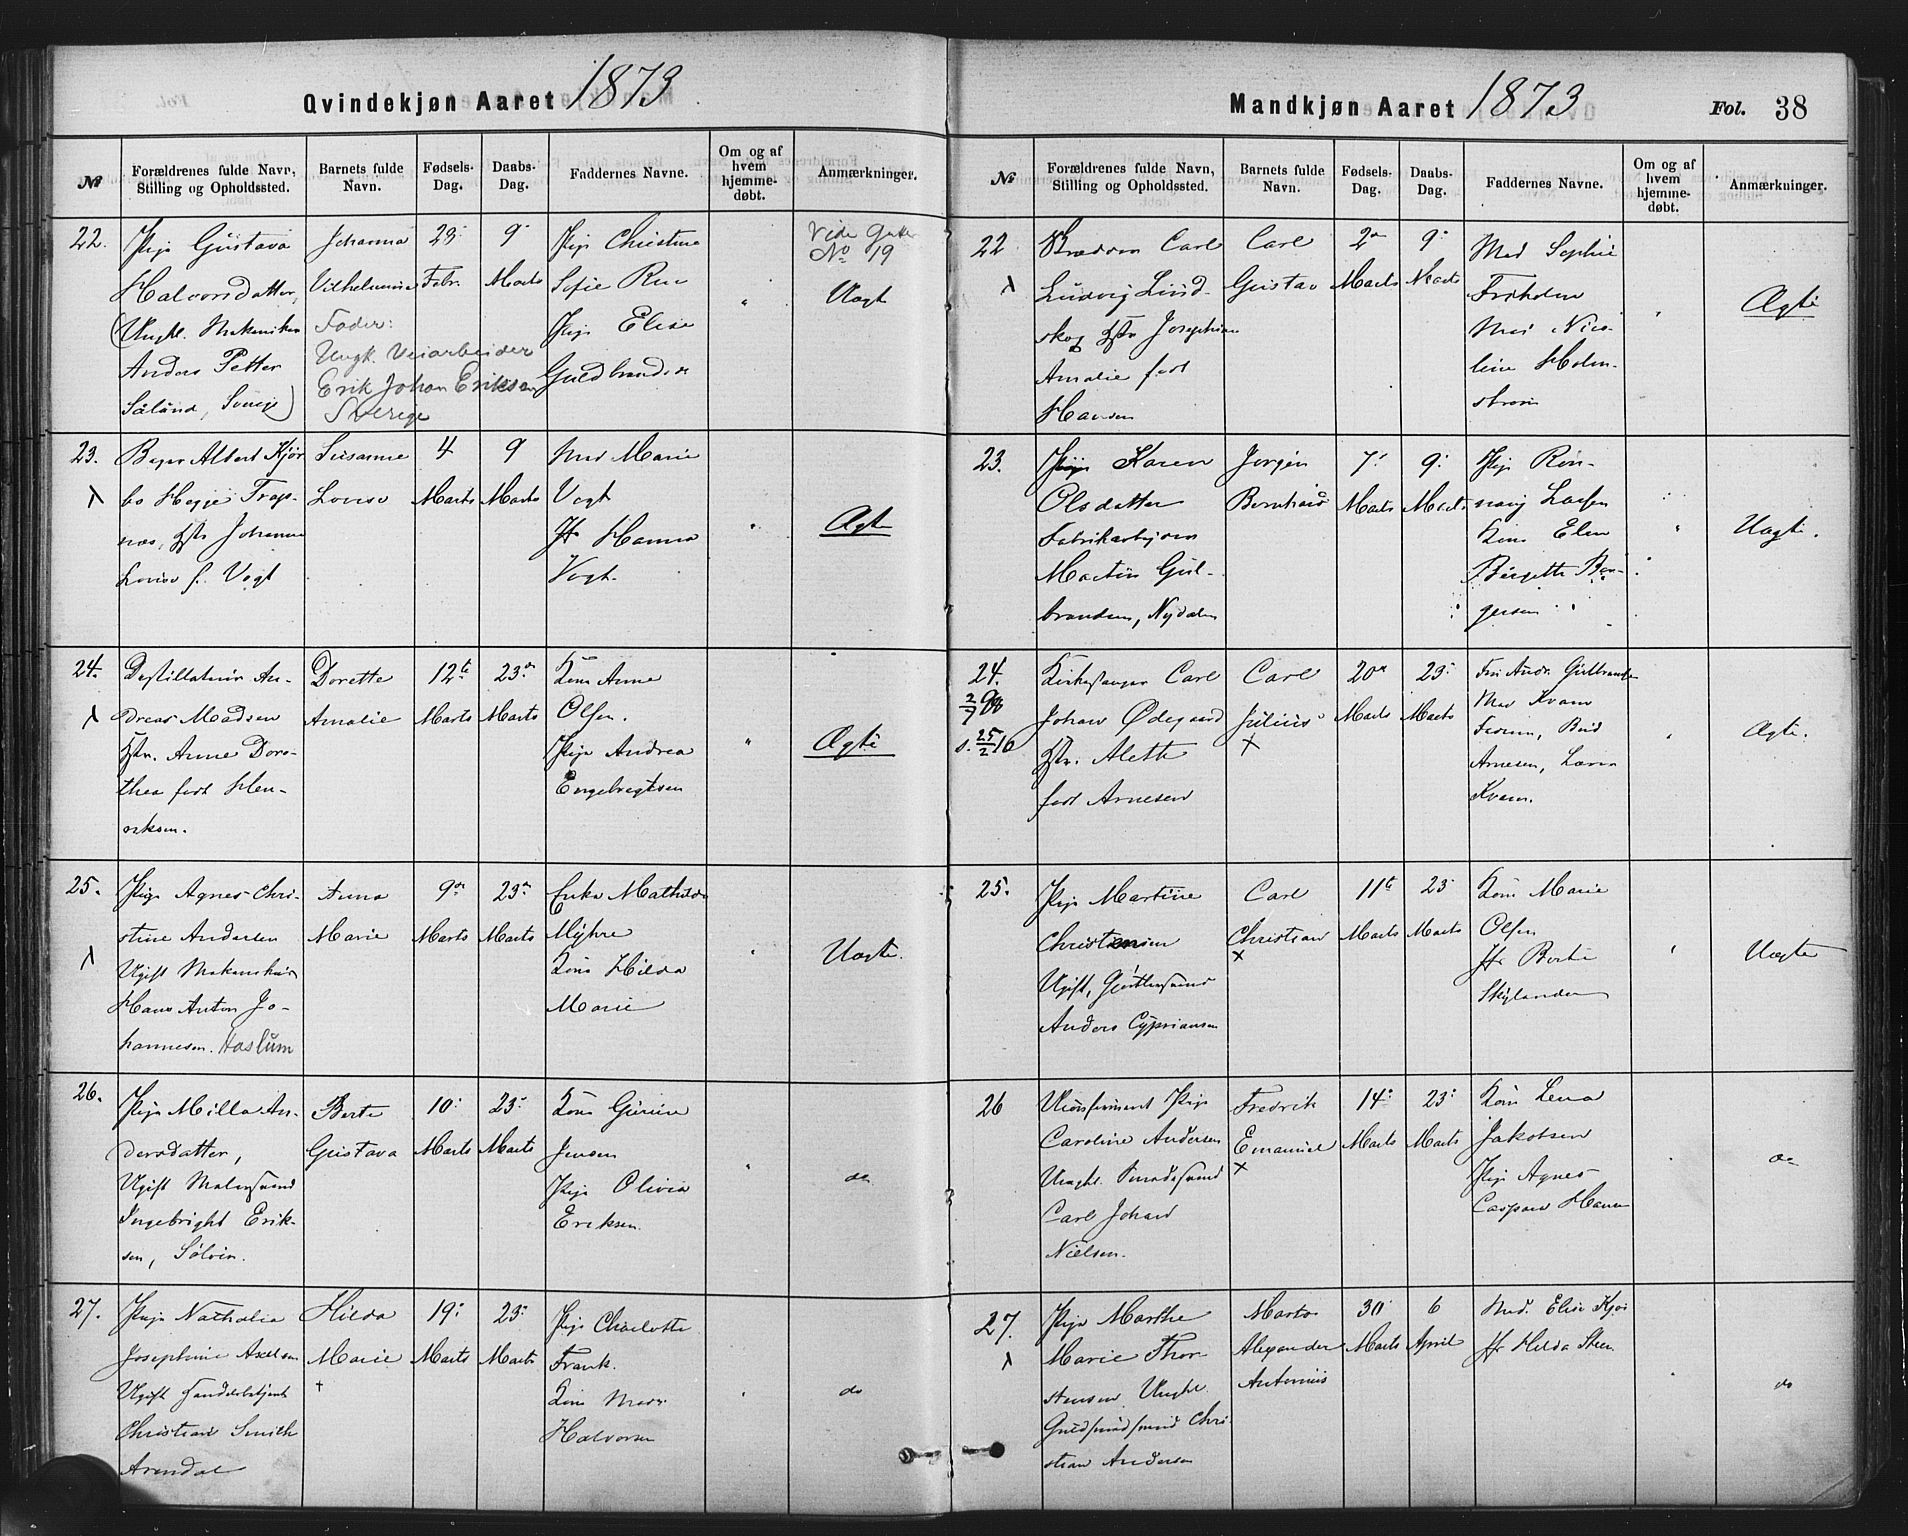 Qvindekjøn Aaret 1873
№
Forældrenes fulde Navn,
Stilling og Opholdssted.
Barnets fulde
Navn.
Fødsels-
Dag.
Daabs-
Dag.
Faddernes Navne.
Om og af
hvem
hjemme-
døbt.
Anmærkninger.
22.
Pige Gustava
Halvorsdatter,
(Ungk. Mekaniker
Anders Petter
Sverige)
Johanna
Vilhelmine
Fader:
Ungk. Veiarbeider
Erik Johan Eriksen
Sverige
23
Febr.
9
Marts
Pige Christine
Sofie
Pige Elise
Guldbrandsen
No 19
Uægt
23.
Bager Albert Kjør-
bo Hegge Trap-
nes, Johanne
Lovise f. Vogt
Susanne
Lovise
4
Marts
9
Marts
Mad Marie
Vogt
Jfr Hanna
Vogt.
Ægte
24.
Destillateur An-
dreas Madsen
Hstr. Anne Doro-
thea født Hen-
riksen.
Dorette
Amalie
12te
Marts
23
Marts
Kone Anne
Olsen.
Pige Andrea
Engebregtsen
Ægte
25.
Pige Agnes Chri-
stine Andersen
Ugift Mekaniker
Hans Anton Jo-
hannesen. Haslum
Anna
Marie
9
Marts
23
Marts
Enke Mathilde
Myhre
Kone Hilda
Marie
Uægte.
26.
Pige Milla An-
dersdatter,
Ugift Malersvend
Ingebright Erik-
sen,
Berte
Gustava
10
Marts
23
Marts
Kone Gurine
Jensen
Pige Olivia
Eriksen.
do
27.
Pige Nathalia
Josephine Axelsen
Ugift Handelsbetjent
Christian Smith
Arendal
Hilda
Marie
19
Marts
23
Marts
Pige Charlotte
Frank.
Kone
Halvorsen
do
Mandkjøn Aaret 1873
Fol. 38
№
Forældrenes fulde Navn,
Stilling og Opholdssted.
Barnets fulde
Navn.
Fødsels-
Dag.
Daabs-
Dag.
Faddernes Navne.
Om og af
hvem
hjemme-
døbt.
Anmærkninger.
22
Carl
Ludvig Lind-
skog Hstr Josephine
Amalie født
Hansen
Carl
Gustav
2
Marts
9
Marts
Mad Sophie
Mad Nico-
line Holm-
strøm
Ægte
23.
Pige Karen
Olsdatter
Fabrikarbeider
Martin Gul-
brandsen, Nydalen
Jørgen
Bernhard
7
Marts
9
Marts
Pige Ron-
naug Larsen
Kone Elen
Birgette Bør-
gersen
Uægte.
24.
Kirkesanger Carl
Johan Ødegaard
Hstr. Alette
født Arnesen
Carl
Julius
20
Marts
23
Marts
Andr. Gulbrands
Mad Kvam
Arnesen,
Kvam.
Ægte.
25.
Pige Martine
Christensen
Ugift,
Anders Cypriansen
Carl
Christian
11te
Marts
23
Marts
Kone Marie
Olsen
Jfr Berte
Skylander
Uægte
26
Ukonfirmeret Pige
Caroline Andersen
Ungk. Smedesvend
Carl Johan
Nielsen.
Fredrik
Emanuel
14
Marts
23
Marts
Kone Lena
Jakobsen
Pige Agnes
Hansen
do
27.
Pige Marthe
Marie Thor-
stensen Ungk.
Guldsmedsvend Chri-
stian Andersen
Alexander
Antonius
30
Marts
6
April
Mad. Elise
Jfr Hilda Steen
do